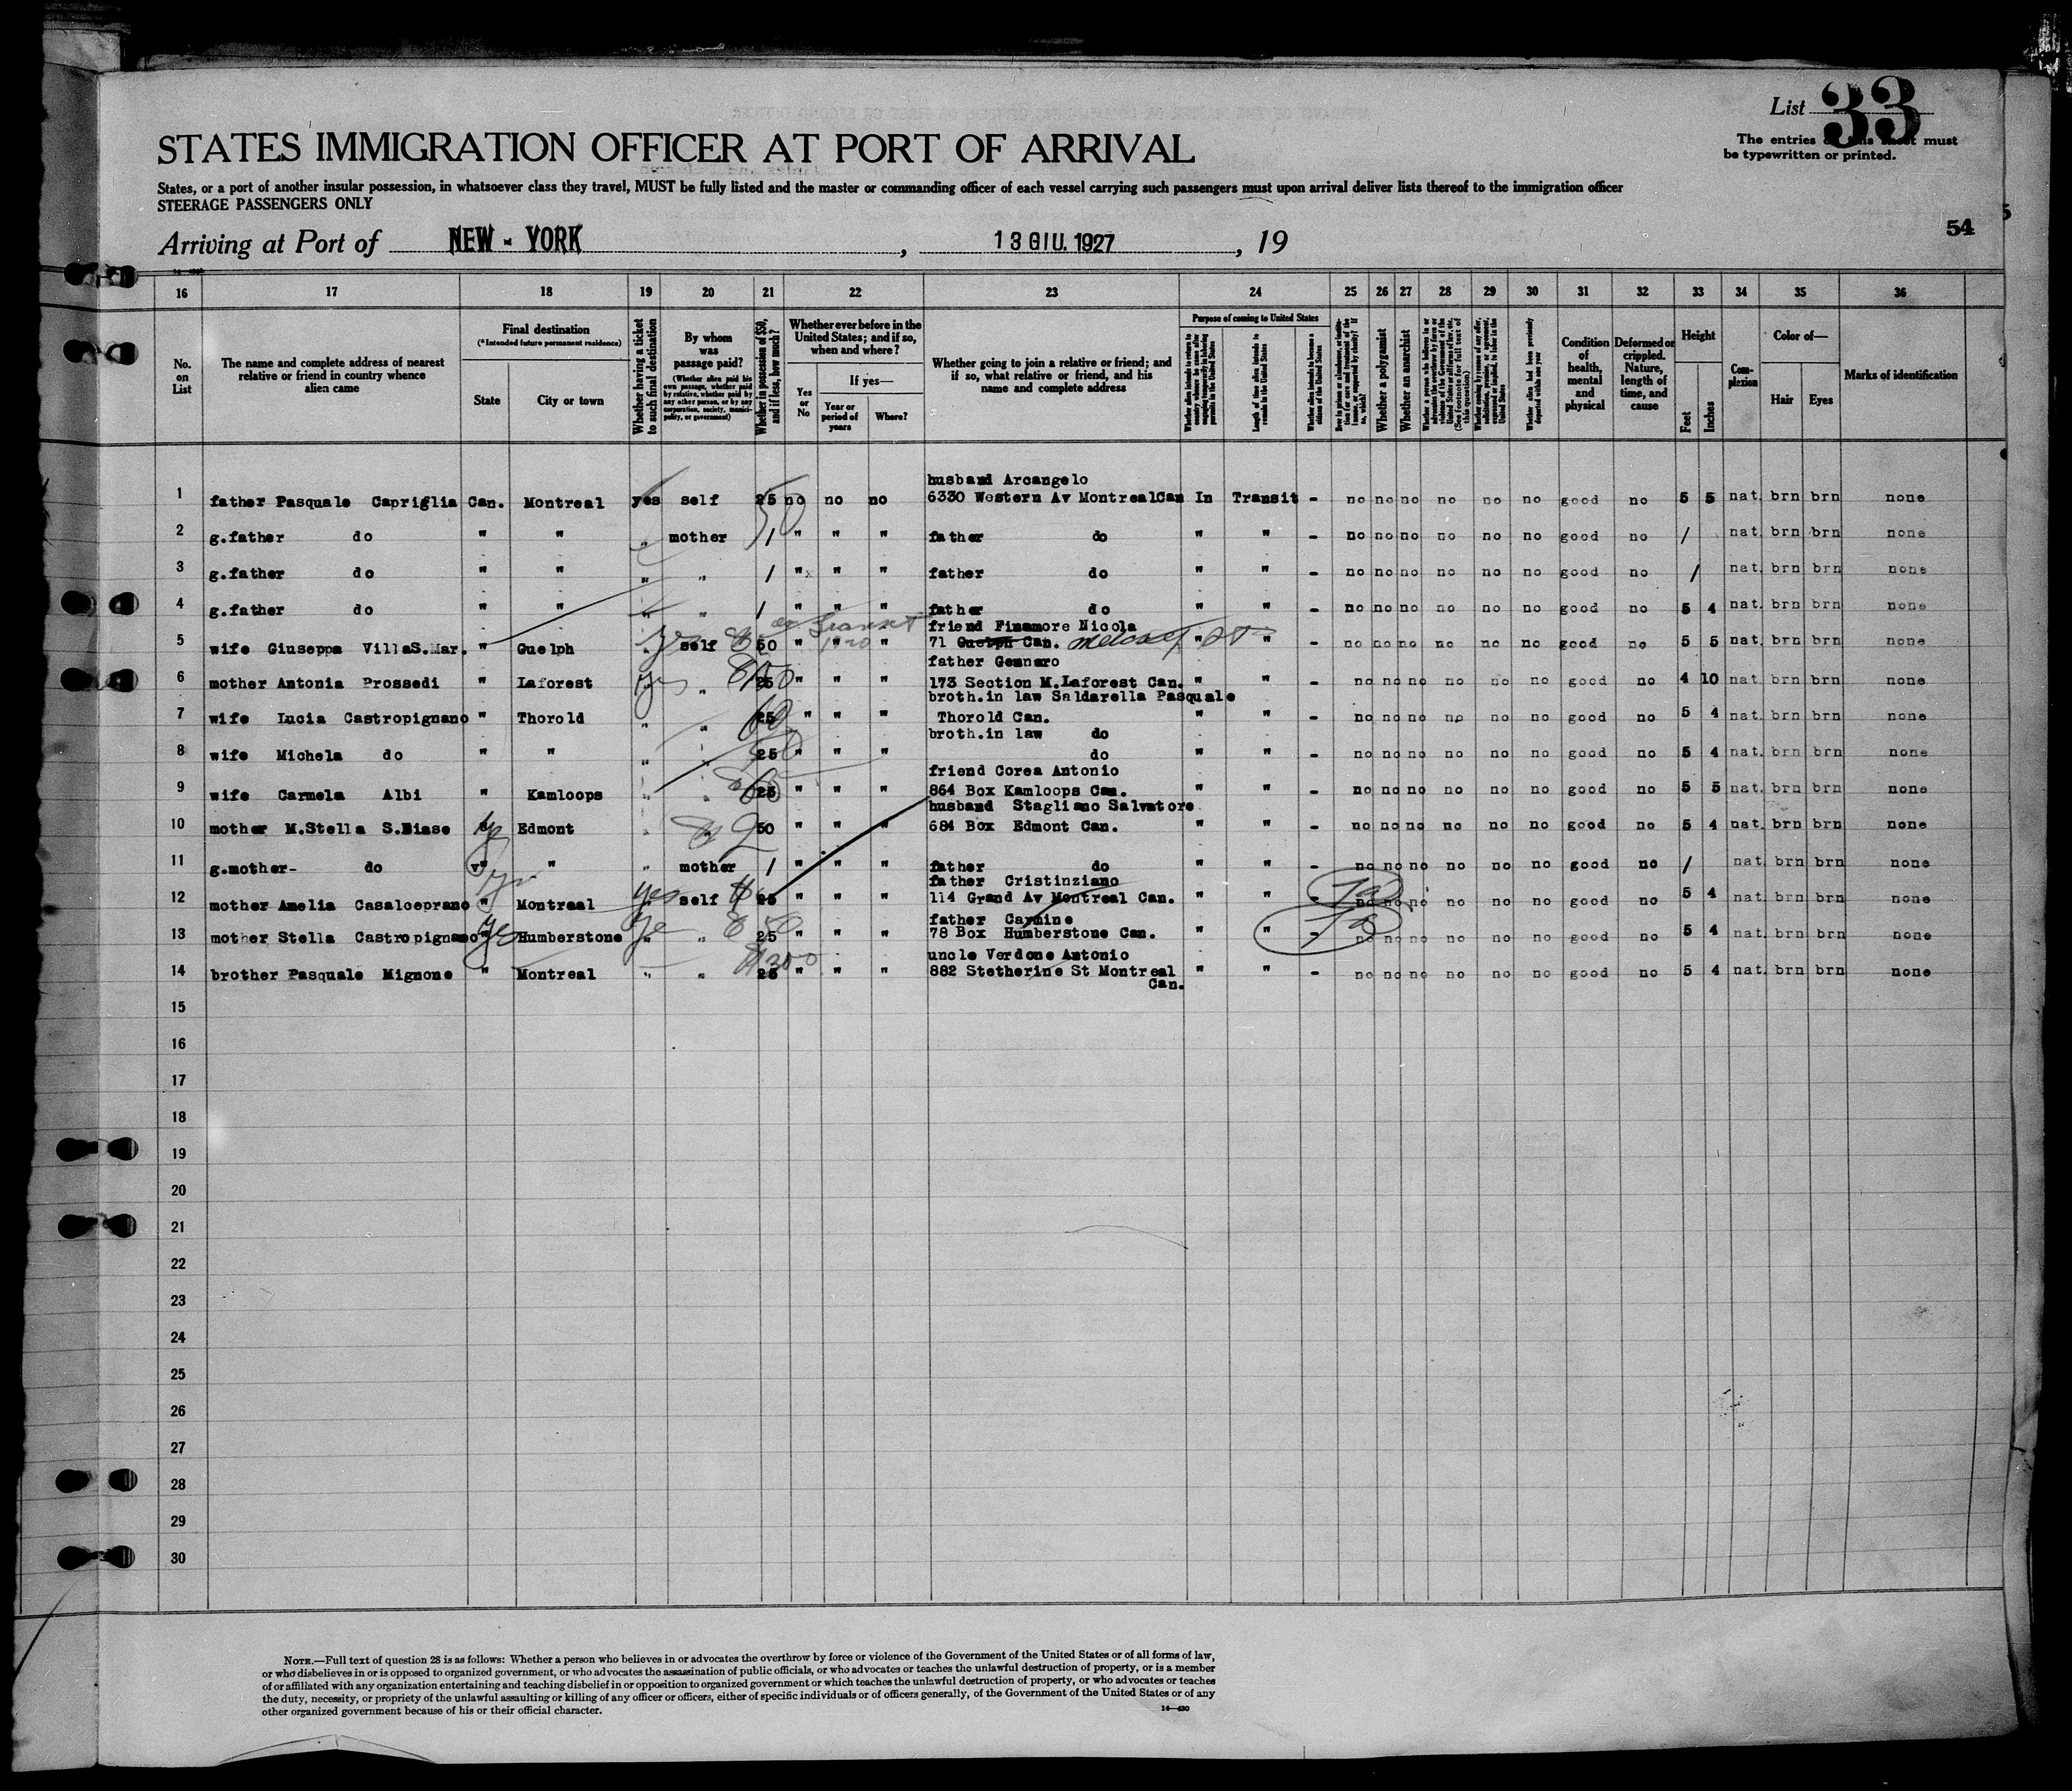 List 33
The entries on this sheet must
be typewritten or printed.
STATES IMMIGRATION OFFICER AT PORT OF ARRIVAL
States, or a port of another insular possession, in whatsoever class they travel, MUST be fully listed and the master or commanding officer of each vessel carrying such passengers must upon arrival deliver lists thereof to the immigration officer
STEERAGE PASSENGERS ONLY
54
Arriving at Port of NEW - YORK, 13 GIU. 1927, 19
16 17 18 19 20 21 22 23 24 25 26 27 28 29 30 31 32 33 34 35 36
No. on List
The name and complete address of nearest relative or friend in country whence alien came
Final destination
(*Intended future permanent residence)
State
City or town
Whether having a ticket to such final destination
By whom was passage paid?
(Whether alien paid his own passage, whether paid by relative, whether paid by any other person, or by any corporation, society, municipality, or government)
Whether in possession of $50, and if less, how much?
Whether ever before in the United States; and if so, when and where?
Yes or No
If yes—
Year or period of years
Where?
Whether going to join a relative or friend; and if so, what relative or friend, and his name and complete address
Purpose of coming to United States
Length of time alien intends to remain in the United States
Whether alien intends to become a citizen of the United States
Whether a polygamist
Whether an anarchist
Whether alien had been previously deported within one year
Condition of health, mental and physical
Deformed or crippled. Nature, length of time, and cause
Height
Feet
Inches
Complexion
Color of—
Hair
Eyes
Marks of identification
husband Arcangelo
1 father Pasquale Capriglia Can. Montreal yes self 25 no no no 6330 Western Av MontrealCan In Transit - no no no no no no good no 5 5 nat. brn brn none
2 g.father do " " " mother / " " " father do " " - no no no no no no good no / nat. brn brn none
3 g.father do " " " " / " " " father do " " - no no no no no no good no / nat. brn brn none
4 g.father do " " " " / " " " father do " " - no no no no no no good no 5 4 nat. brn brn none
friend Finamore Nicola
5 wife Giuseppa VillaS.Mar. " Guelph " self 50 " " " 71 Guelph Can. " " - no no no no no no good no 5 5 nat. brn brn none
father Gennaro
6 mother Antonia Prossedi " Laforest " " 25 " " " 173 Section M.Laforest Can. " " - no no no no no no good no 4 10 nat. brn brn none
broth.in law Saldarella Pasquale
7 wife Lucia Castropignano " Thorold " " 25 " " " Thorold Can. " " - no no no no no no good no 5 4 nat. brn brn none
broth.in law do
8 wife Michela do " " " " 25 " " " do " " - no no no no no no good no 5 4 nat. brn brn none
friend Corea Antonio
9 wife Carmela Albi " Kamloops " " 25 " " " 864 Box Kamloops Can. " " - no no no no no no good no 5 5 nat. brn brn none
husband Stagliano Salvatore
10 mother M.Stella S.Biase " Edmont " " 50 " " " 684 Box Edmont Can. " " - no no no no no no good no 5 4 nat. brn brn none
11 g.mother- do " " " mother / " " " father do " " - no no no no no no good no / nat. brn brn none
father Cristinziano
12 mother Amelia Casalceprano " Montreal yes self 25 " " " 114 Grand Av Montreal Can. " " - no no no no no no good no 5 4 nat. brn brn none
father Carmine
13 mother Stella Castropignano " Humberstone " " 25 " " " 78 Box Humberstone Can. " " - no no no no no no good no 5 4 nat. brn brn none
uncle Verdone Antonio
14 brother Pasquale Mignone " Montreal " " 25 " " " 882 Stetherine St Montreal " " - no no no no no no good no 5 4 nat. brn brn none
Can.
15
16
17
18
19
20
21
22
23
24
25
26
27
28
29
30
NOTE.—Full text of question 28 is as follows: Whether a person who believes in or advocates the overthrow by force or violence of the Government of the United States or of all forms of law,
or who disbelieves in or is opposed to organized government, or who advocates the assassination of public officials, or who advocates or teaches the unlawful destruction of property, or is a member
of or affiliated with any organization entertaining and teaching disbelief in or opposition to organized government or which teaches the unlawful destruction of property, or who advocates or teaches
the duty, necessity, or propriety of the unlawful assaulting or killing of any officer or officers, either of specific individuals or of officers generally, of the Government of the United States or of any
other organized government because of his or their official character.
14—430